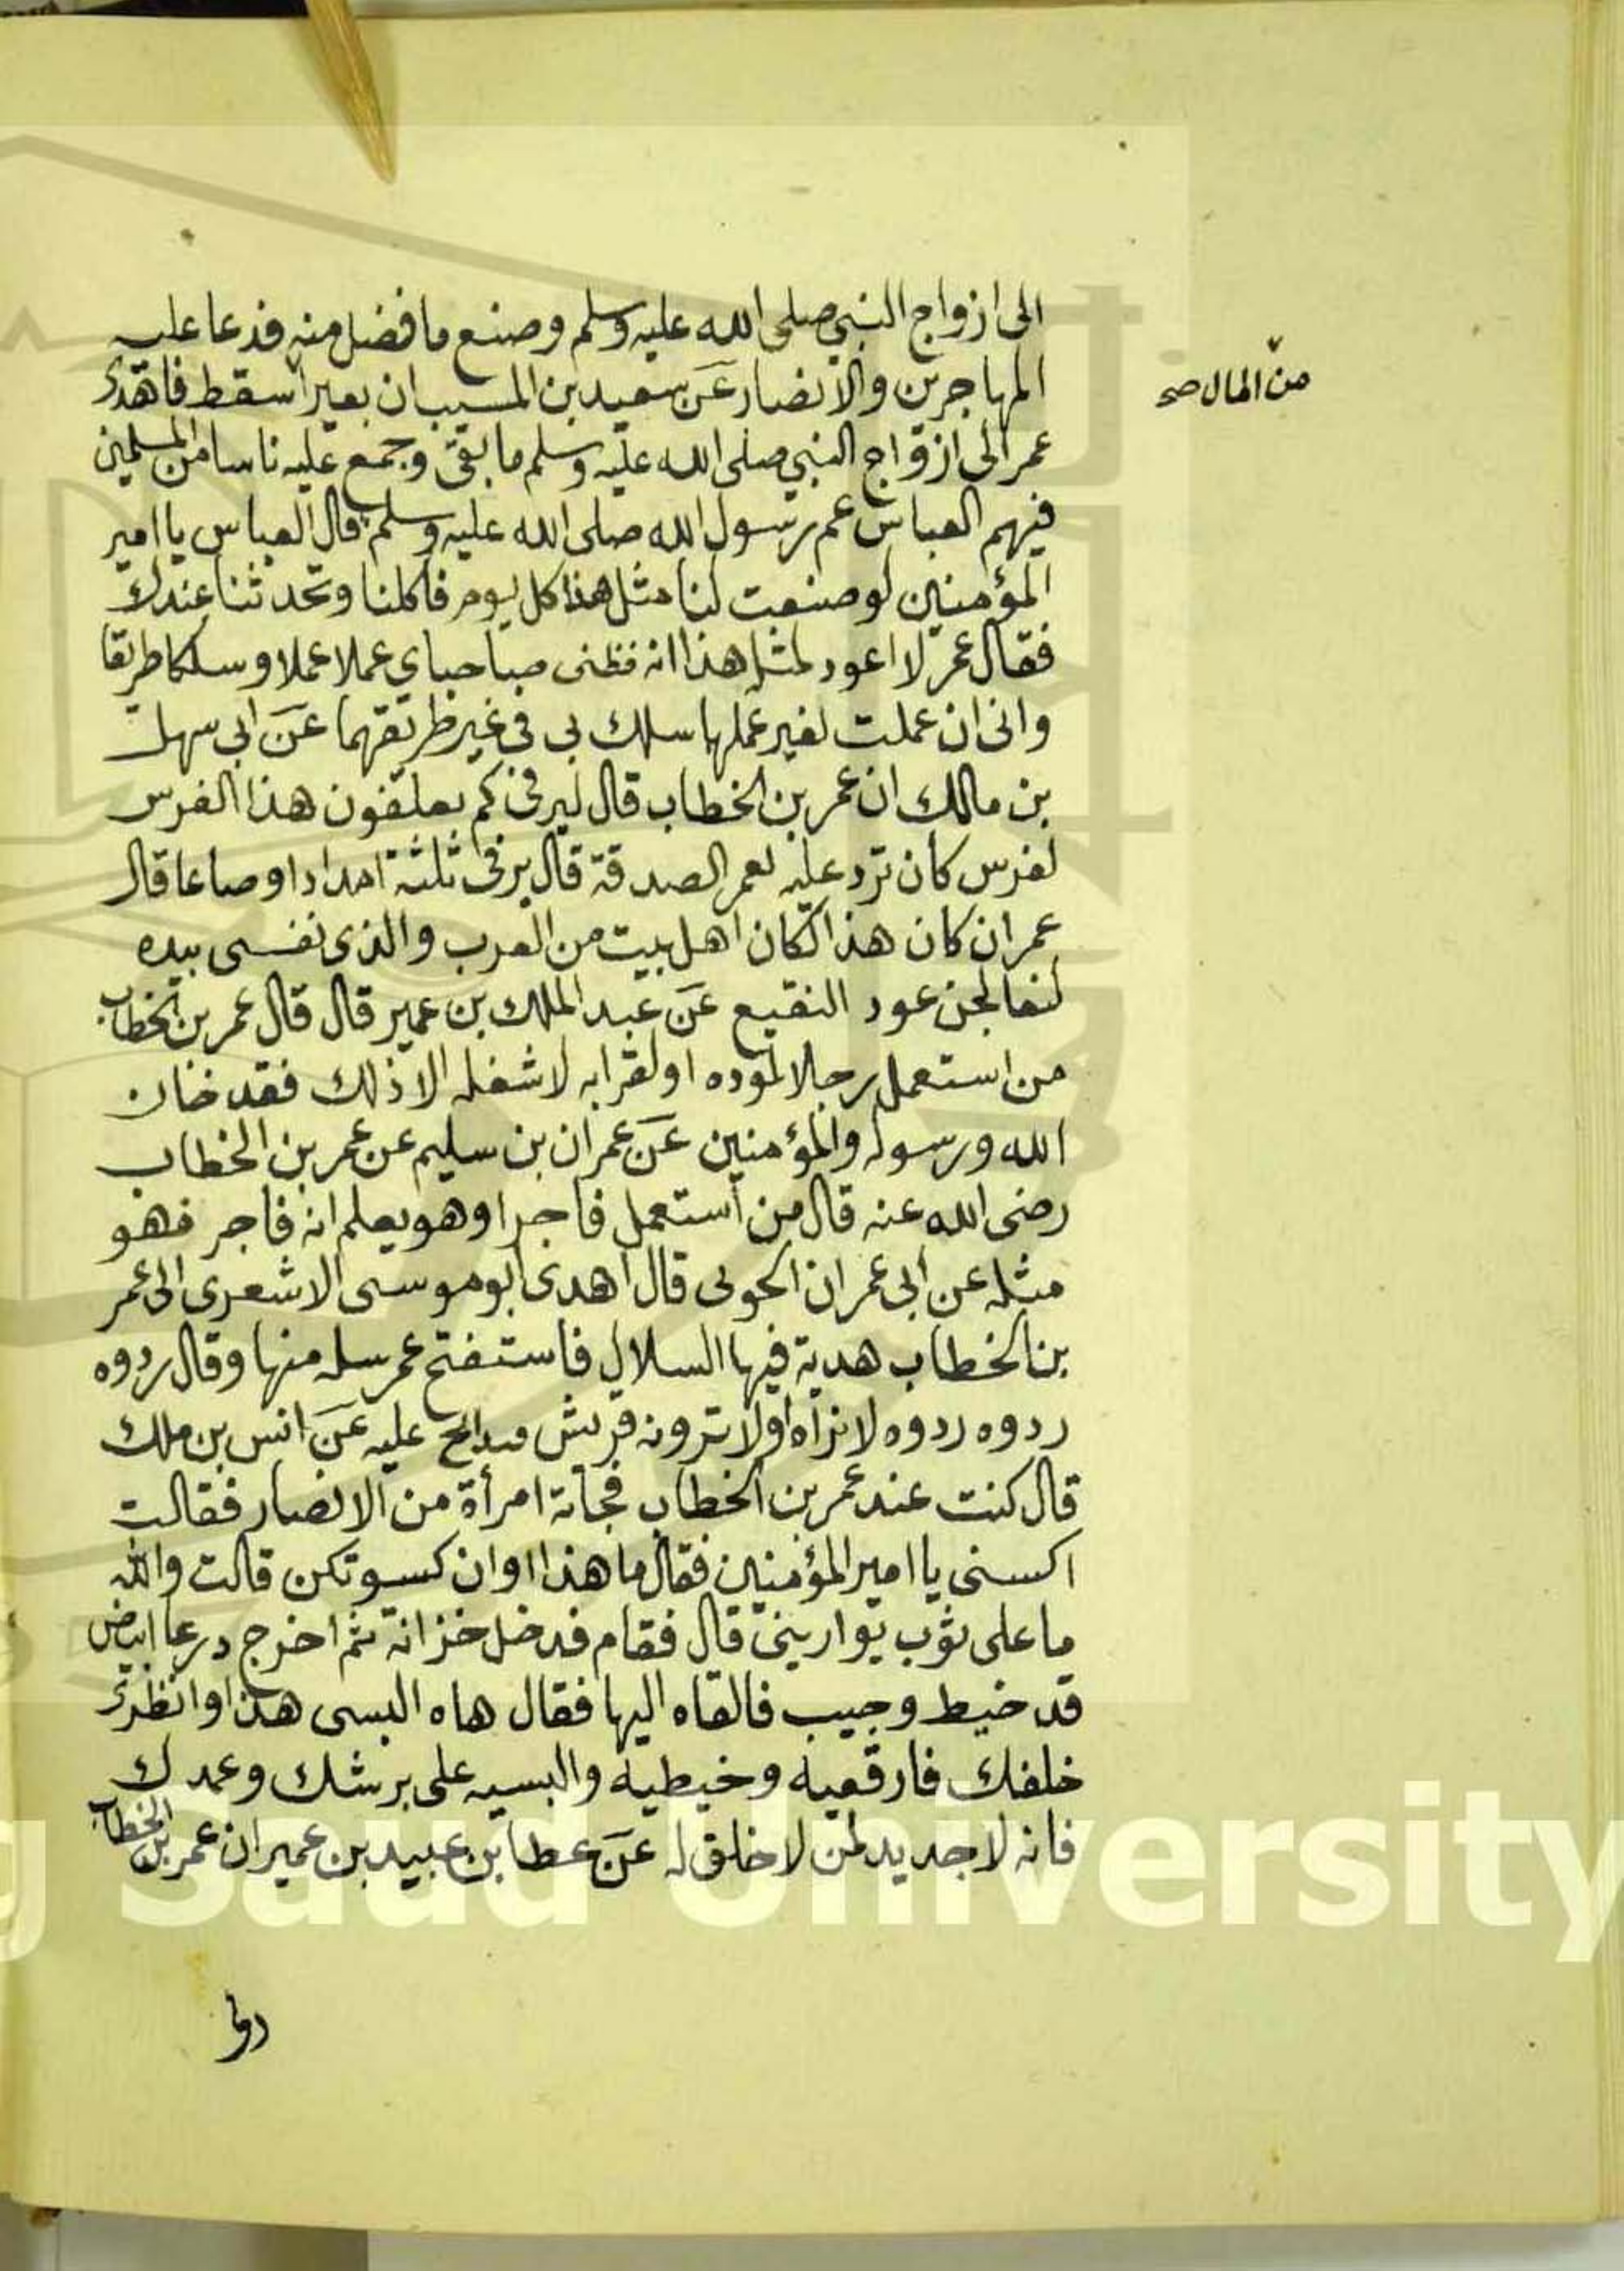 الى ازواج النبي صلى الله عليه وسلم وصنع ما فضل منه فدعا عليه
المهاجرين والانصار عن سعيد بن المسيب ان بعيرا سقط فاهدى
من المال صح
عمر الى ازواج النبي صلى الله عليه وسلم ما بقى وجمع عليه ناسا من المسلمين
فيهم العباس عم رسول الله صلى الله عليه وسلم قال العباس يا امير
المؤمنين لو صنعت لنا مثل هذا كل يوم فاكلنا وتحدثنا عندك
فقال عمر لا اعود لمثل هذا انه مضى صاحباي عملا عملا وسلكا طريقا
وانى ان عملت لغير عملهما سلك بي في غير طريقهما عن ابي سهل
بن مالك ان عمر بن الخطاب قال ليرفى كم يعلفون هذا الفرس
لفرس كان ترد عليه نعم الصدقة قال يرفى ثلثة امداد او صاعا قال
عمر ان كان هذا لكان اهل بيت من العرب والذى نفسى بيده
لتعالجن عود النقيع عن عبد الملك بن عمير قال قال عمر بن الخطاب
من استعمل رجلا لموده او لقرابه لا شغله الا ذلك فقد خان
الله ورسوله والمؤمنين عن عمران بن سليم عن عمر بن الخطاب
رضى الله عنه قال من استعمل فاجرا وهو يعلم انه فاجر فهو
مثله عن ابى عمران الجونى قال اهدى ابو موسى الاشعرى الى عمر
بن الخطاب هدية فيها السلال فاستفتح عمر سله منها وقال ردوه
ردوه ردوه لا نراه او لا ترونه قريش عليه عن انس بن ملك
قال كنت عند عمر بن الخطاب فجاته امرأة من الانصار فقالت
اكسنى يا امير المؤمنين فقال ما هذا اوان كسوتكن قالت والله
ما على ثوب يوارينى قال فقام فدخل خزانة ثم اخرج درعا ابيض
قد خيط وجيب فالقاه اليها فقال هاه البسى هذا وانظرى
خلفك فارقعيه وخيطيه والبسيه على برشك وعمدك
فانه لا جديد لمن لا خلق له عن عطا بن عبيد بن عمير ان عمر بن الخطاب
King Saud University